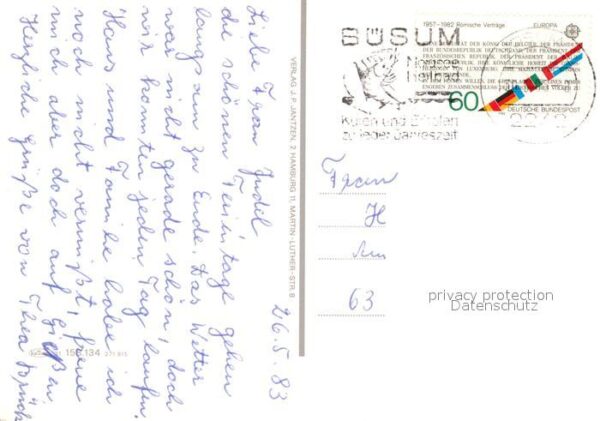 26.5.83
Liebe Frau Judel
die schönen Ferientage gehen
bald zu Ende. Das Wetter
war nicht gerade schön, doch
wir konnten jeden Tag laufen.
Haus und Familie habe ich
noch nicht vermißt, freue
mich aber doch auf Gießen.
Herzliche Grüße von Thea
VERLAG J.P. JANTZEN, 2 HAMBURG 11, MARTIN-LUTHER-STR. 8
271 815
BÜSUM
Nordsee
Heilbad
Kuren und
zu jeder Jahreszeit
1957-1982 Römische Verträge
EUROPA
60
DEUTSCHE BUNDESPOST
Frau
H
Am
63
privacy protection
Datenschutz